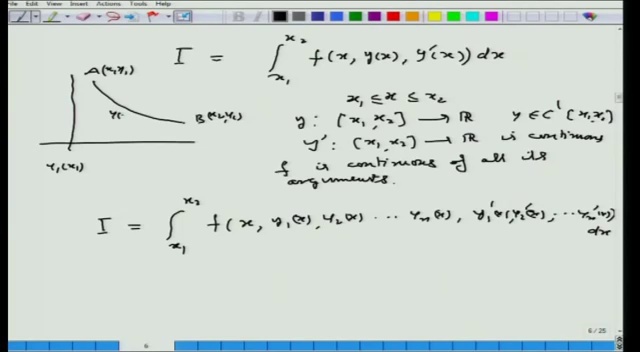 File Edit View Insert Actions Tools Help
I = ∫_{x₁}^{x₂} f(x, y(x), y'(x)) dx
A(x₁, y₁)
x₁ ≤ x ≤ x₂
B(x₂, y₂)
y : [x₁, x₂] → ℝ y ∈ C' [x₁, x₂]
y' : [x₁, x₂] → ℝ is continuous
y₁(x₁)
f is continuous of all its
arguments.
I = ∫_{x₁}^{x₂} f(x, y₁(x), y₂(x) ... yₙ(x), y₁'(x), y₂'(x), ... yₙ'(x))
dx
6 / 25
6